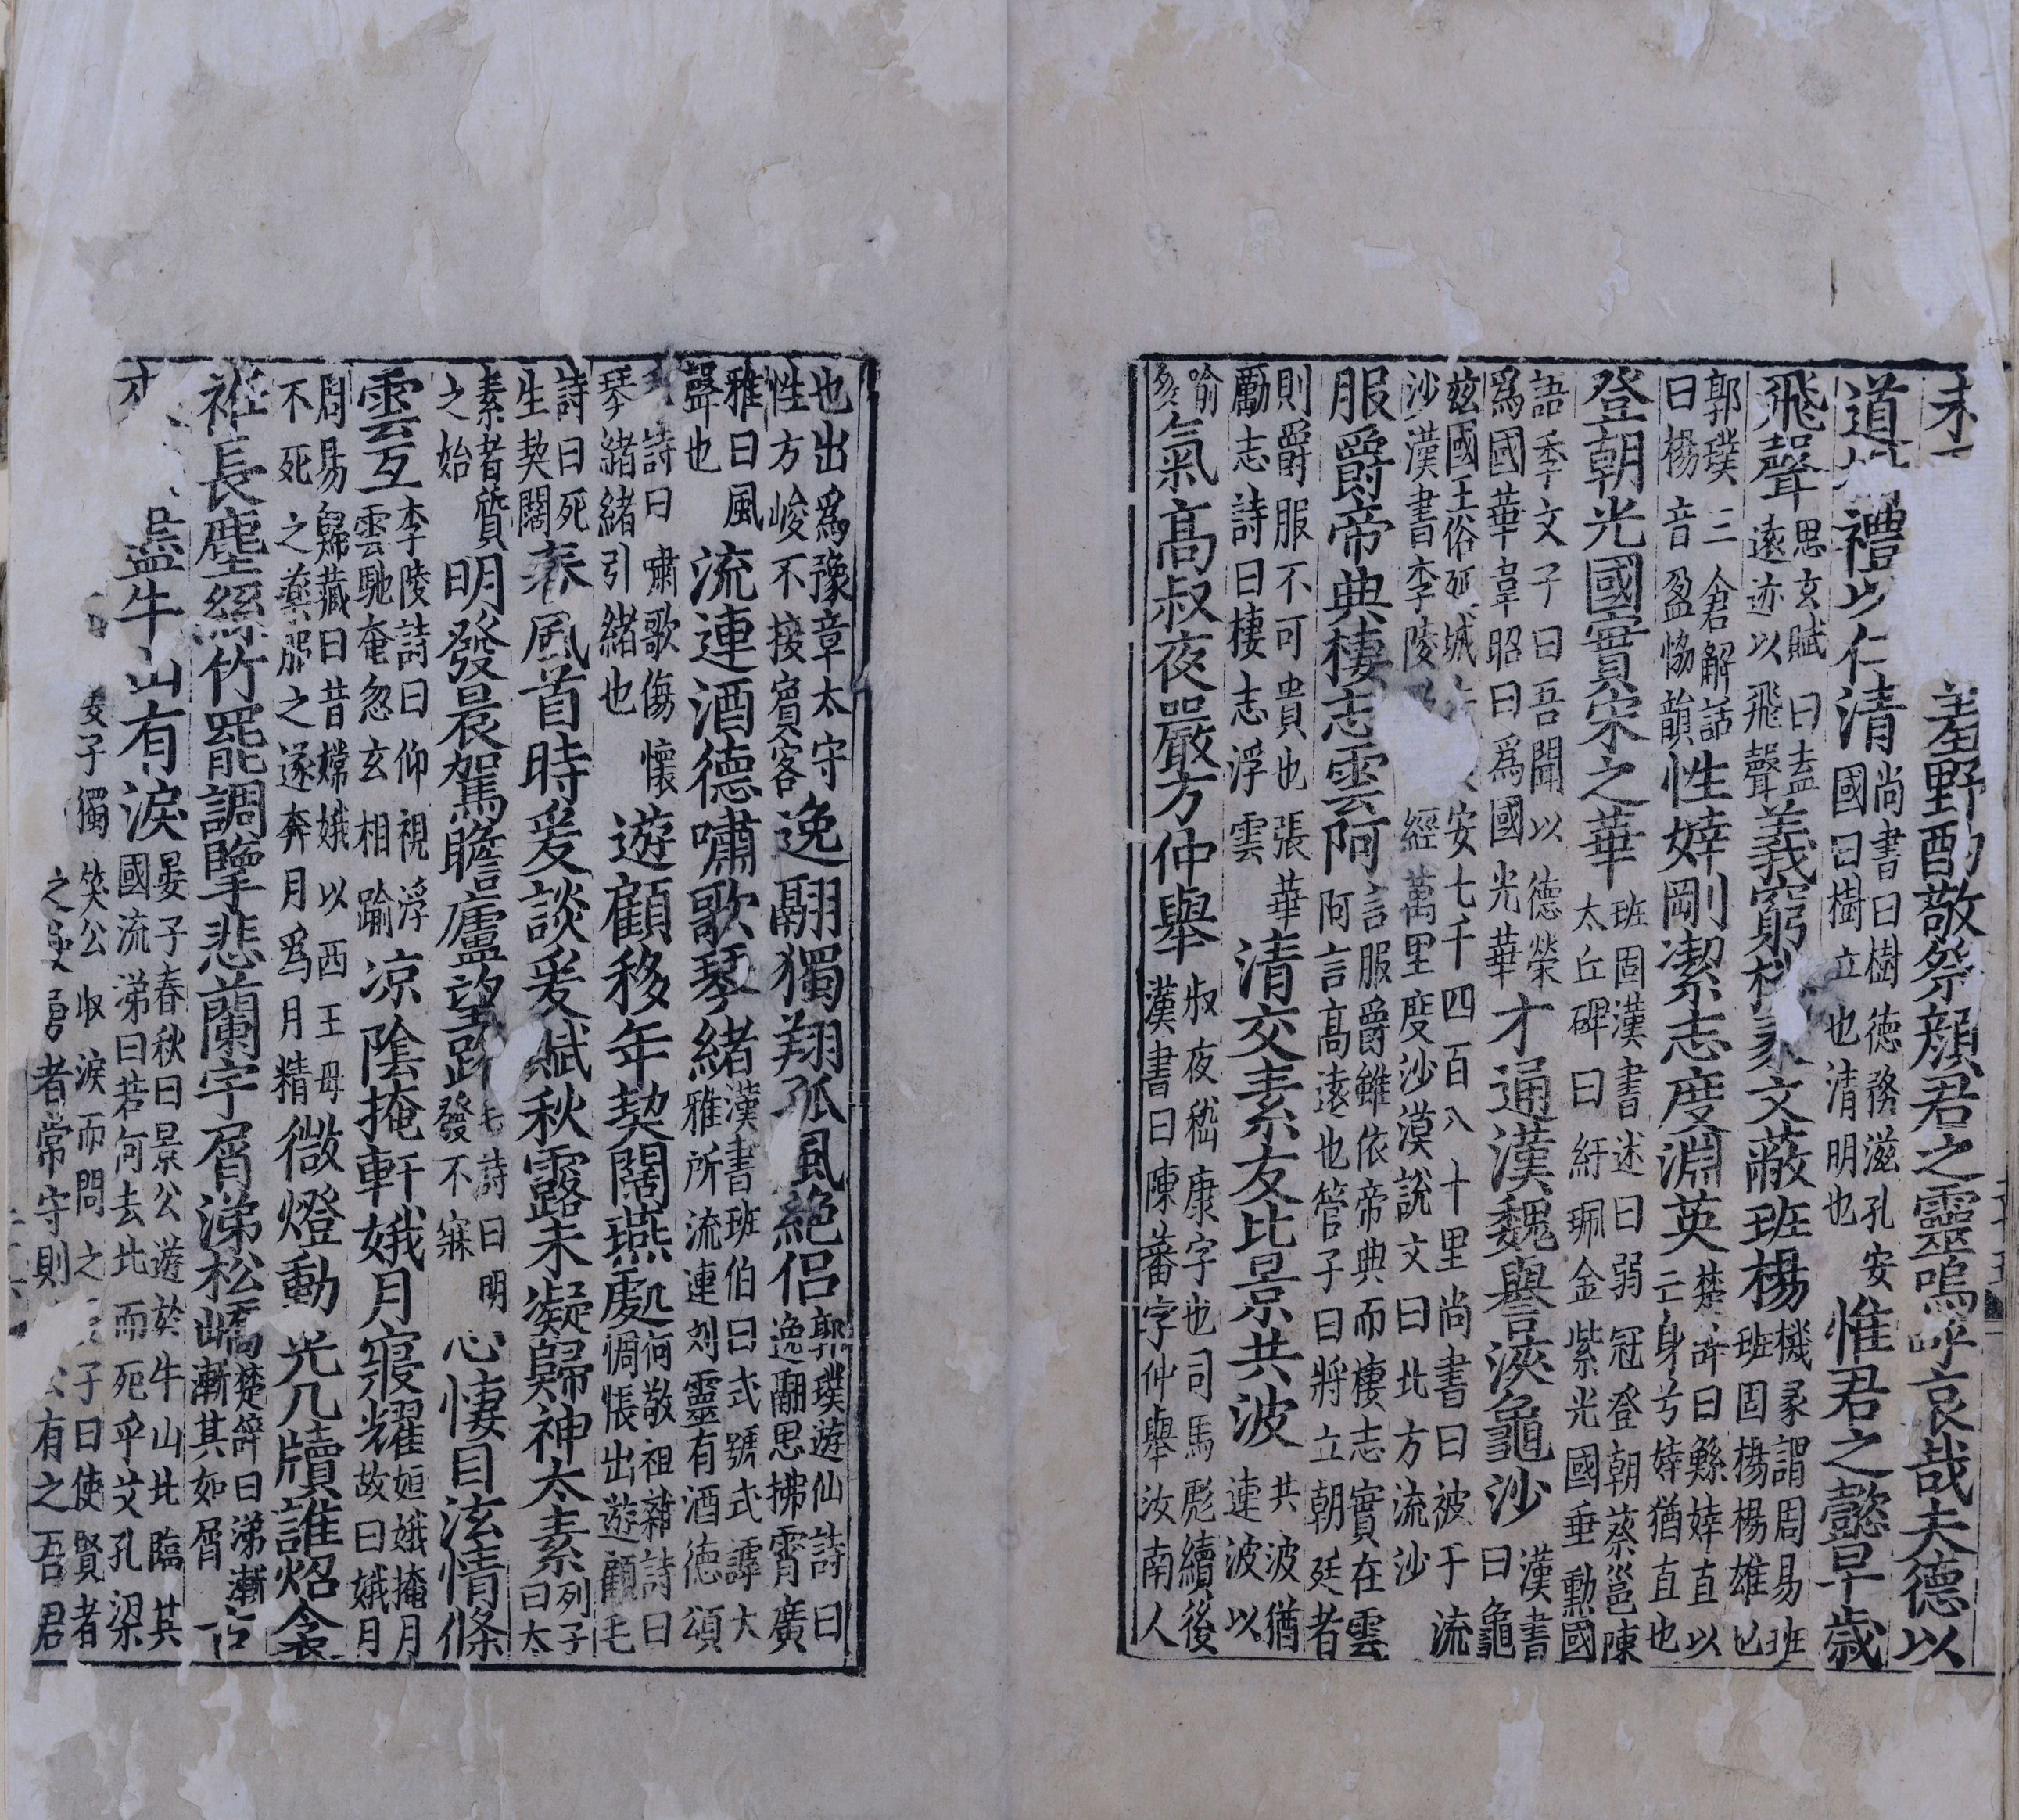 羞野酌敬祭顏君之靈嗚呼哀哉夫德以
道禮以仁清尚書曰樹德務滋孔安國曰樹立也清明也惟君之懿早歲
飛聲思玄賦曰盍遠迹以飛聲義窮機彖文蔽班楊機彖謂周易班班固楊楊雄也
郭璞三倉解詁曰楊音盈協韻性婞剛潔志度淵英楚辭曰鯀婞直以亡身兮婞猶直也
登朝光國實宋之華班固漢書述曰弱冠登朝蔡邕陳太丘碑曰紆珮金紫光國垂勳國
語季文子曰吾聞以德榮爲國華韋昭曰爲國光華才通漢魏譽浹龜沙漢書曰龜
茲國王俗延城安七千四百八十里尚書曰被于流沙漢書李陵經萬里度沙漠說文曰北方流沙
服爵帝典棲志雲阿言服爵雖依帝典而棲志實在雲阿言高遠也管子曰將立朝廷者
則爵服不可貴也張華勵志詩曰棲志浮雲清交素友比景共波共波猶連波以
喻多氣高叔夜嚴方仲舉叔夜嵇康字也司馬彪續後漢書曰陳蕃字仲舉汝南人
也出爲豫章太守性方峻不接賓客逸翮獨翔孤風絕侣郭璞遊仙詩曰逸翮思拂霄廣
雅曰風聲也流連酒德嘯歌琴緒漢書班伯曰式號式謼大雅所流連刘靈有酒德頌
詩曰嘯歌傷懷琴緒緒引緒也遊顧移年契闊燕處何敬祖雜詩曰惆悵出遊顧毛
詩曰死生契闊春風首時爰談爰賦秋露未凝歸神太素列子曰太
素者質之始明發晨駕瞻廬望路毛詩曰明發不寐心悽目泫情條
雲互李陵詩曰仰視浮雲馳奄忽玄相踰凉陰掩軒娥月寢耀姮娥掩月故曰娥月
周易歸藏曰昔嫦娥以西王母不死之藥服之遂奔月爲月精微燈動光几牘誰炤衾
衽長塵絲竹罷調擥悲蘭宇屑涕松嶠楚辭曰涕漸漸其如屑古
來盡牛山有淚晏子春秋曰景公遊於牛山北臨其國流涕曰若何去此而死乎艾孔梁
晏子獨笑公收淚而問之子曰使賢者常守則有之吾君